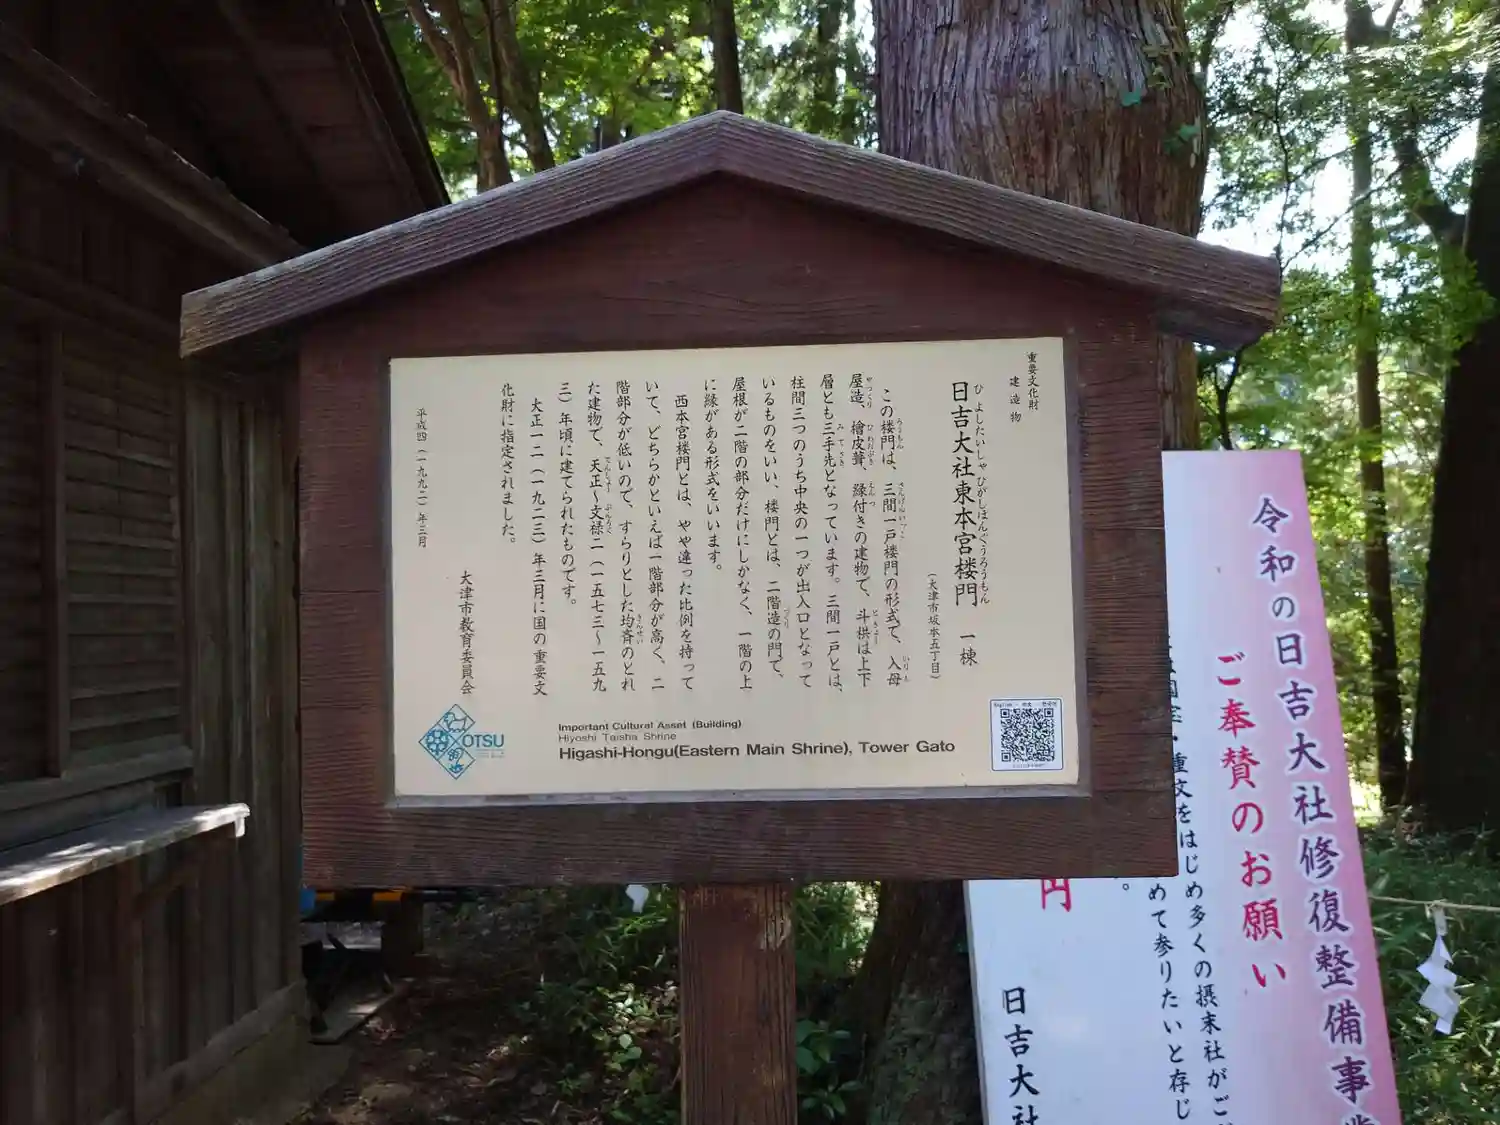 重要文化財
建造物
日吉大社東本宮楼門 一棟
ひよしたいしゃひがしほんぐうろうもん
(大津市坂本五丁目)
この楼門は、三間一戸楼門の形式で、入母
屋造、檜皮葺、縁付きの建物で、斗栱は上下
層とも三手先となっています。三間一戸とは、
柱間三つのうち中央の一つが出入口となって
いるものをいい、楼門とは、二階造の門で、
屋根が二階の部分だけにしかなく、一階の上
に縁がある形式をいいます。
西本宮楼門とは、やや違った比例を持って
いて、どちらかといえば一階部分が高く、二
階部分が低いので、すらりとした均斉のとれ
た建物で、天正〜文禄二(一五七三〜一五九
三)年頃に建てられたものです。
大正一二(一九二三)年三月に国の重要文
化財に指定されました。
大津市教育委員会
平成四(一九九二)年三月
OTSU
Important Cultural Asset (Building)
Hiyoshi Taisha Shrine
Higashi-Hongu(Eastern Main Shrine), Tower Gato
令和の日吉大社修復整備事業
ご奉賛のお願い
重文をはじめ多くの摂末社がご
めて参りたいと存じ
円
日吉大社